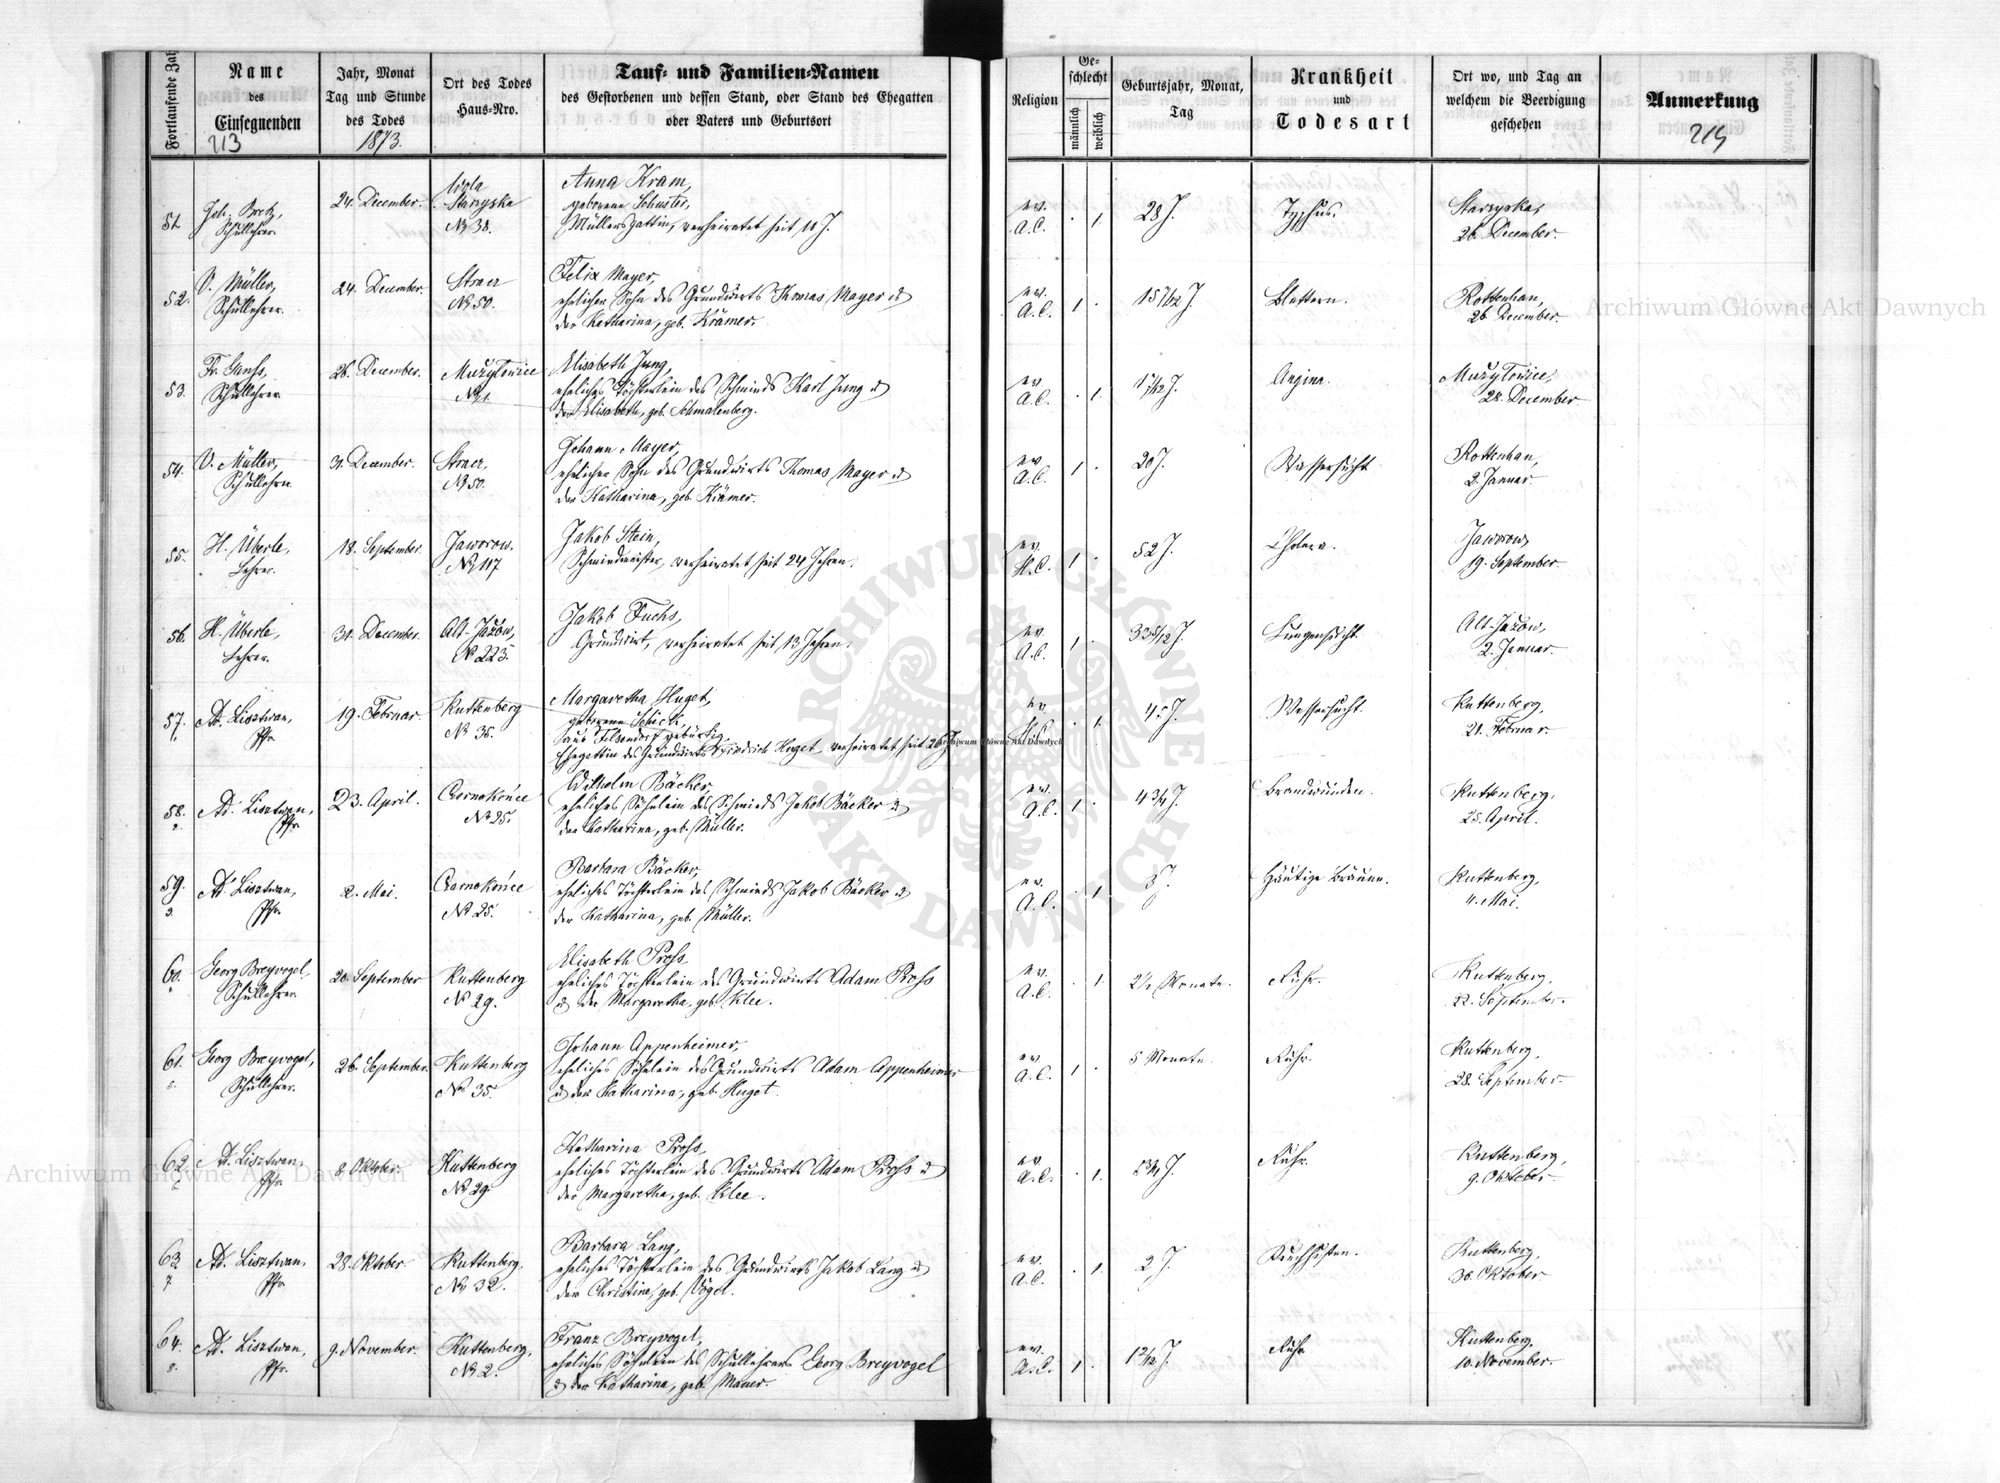 Fortlaufende Zahl
Name
des
Einsegnenden
213
Jahr, Monat
Tag und Stunde
des Todes
1873.
Ort des Todes
Haus-Nro.
Tauf- und Familien-Namen
des Gestorbenen und dessen Stand, oder Stand des Ehegatten
oder Vaters und Geburtsort
Religion
Ge-
schlecht
männlich
weiblich
Geburtsjahr, Monat,
Tag
Krankheit
und
Todesart
Ort wo, und Tag an
welchem die Beerdigung
geschehen
Anmerkung
214
51.
Joh. Bretz,
Schullehrer.
24. December.
Wola
Starzyska
No 38.
Anna Kram,
geborene Schuster,
Müllersgattin, verheiratet seit 11 J.
ev.
A.C.
1.
28 J.
Typhus.
Starzyska,
26. December.
52.
V. Müller,
Schullehrer.
24. December.
No 50.
Felix Mayer,
ehelicher Sohn des Grundwirts Thomas Mayer u
der Katharina, geb. Krämer.
ev.
A.C.
1
15 7/12 J.
Blattern.
Rottenhan,
26. December.
53.
Fr. Ganss,
Schullehrer.
26. December.
Mużyłowice
No 1.
Elisabeth Jung,
eheliches Töchterlein des Schmieds Karl Jung u
der Elisabeth, geb. Schmalenberg.
ev.
A.C.
1.
1 7/12 J.
Angina.
Mużyłowice,
28. December.
54.
V. Müller,
Schullehrer
31. December.
No 50.
Johann Mayer,
ehelicher Sohn des Grundwirts Thomas Mayer u
der Katharina, geb. Krämer.
ev.
A.C.
1
20 J.
Wassersucht
Rottenhan,
2. Januar.
55.
H. Überle,
Lehrer.
18. September.
Jaworow.
No 117
Jakob Stein,
Schmiedmeister, verheiratet seit 24 Jahren.
ev.
H.C.
1
52 J.
Cholera.
Jaworow,
19. September.
56.
H. Überle,
Lehrer.
31. December.
Alt-Jażów,
No 223.
Jakob Fuchs,
Grundwirt, verheiratet seit 13 Jahren.
ev.
A.C.
1
33 5/12 J.
Lungensucht.
Alt-Jażow,
2. Januar.
57.
1.
Ad. Lisztwan,
Pfr.
19. Februar.
Kuttenberg
No 36.
Margaretha Huget,
geborene Schick,
aus Felsendorf gebürtig,
Ehegattin des Grundwirts Friedrich Huget, verheiratet seit 26 J.
ev.
H.C.
1.
45 J.
Wassersucht.
Kuttenberg,
21. Februar.
58.
2.
Ad. Lisztwan,
Pfr.
23. April.
Czarnokońce
No 25.
Wilhelm Bäcker,
eheliches Söhnlein des Schmieds Jakob Bäcker u
der Katharina, geb. Müller.
ev.
A.C.
1
4 3/4 J.
Brandwunden.
Kuttenberg,
25. April.
59.
3.
Ad. Lisztwan,
Pfr.
2. Mai.
Czarnokońce
No 25.
Barbara Bäcker,
eheliches Töchterlein des Schmieds Jakob Bäcker u
der Katharina, geb. Müller.
ev.
A.C.
1
Häutige Bräune.
Kuttenberg,
4. Mai.
60.
Georg Breyvogel,
Schullehrer.
20. September
Kuttenberg
No 29.
Elisabeth Pross,
eheliches Töchterlein des Grundwirts Adam Pross
u der Margaretha, geb. Klee.
ev.
A.C.
1.
2 1/2 Monate.
Ruhr.
Kuttenberg,
22. September.
61.
Georg Breyvogel,
Schullehrer.
26. September.
Kuttenberg
No 35.
Johann Appenheimer,
eheliches Söhnlein des Grundwirts Adam Appenheimer
u der Katharina, geb. Huget.
ev.
A.C.
1
5 Monate.
Ruhr.
Kuttenberg,
28. September.
62.
Ad. Lisztwan,
Pfr.
8. Oktober.
Kuttenberg
No 29.
Katharina Pross,
eheliches Töchterlein des Grundwirts Adam Pross u
der Margaretha, geb. Klee.
ev.
A.C.
1.
Ruhr.
Kuttenberg,
9. Oktober.
63.
7
Ad. Lisztwan,
Pfr.
28. Oktober.
Kuttenberg,
No 32.
Barbara Lang,
eheliches Töchterlein des Grundwirts Jakob Lang u
der Christina, geb. Vogel.
ev.
A.C.
1.
2 J.
Keuchhusten.
Kuttenberg,
30. Oktober
64.
8.
Ad. Lisztwan,
Pfr.
9. November.
Kuttenberg,
No 2.
Franz Breyvogel,
eheliches Söhnlein des Schullehrers Georg Breyvogel
u der Katharina, geb. Mauer.
ev.
A.C.
1
1 2/12 J.
Ruhr
Kuttenberg,
10. November.
Archiwum Główne Akt Dawnych
Archiwum Główne Akt Dawnych
Archiwum Główne Akt Dawnych
ARCHIWUM GŁÓWNE AKT DAWNYCH